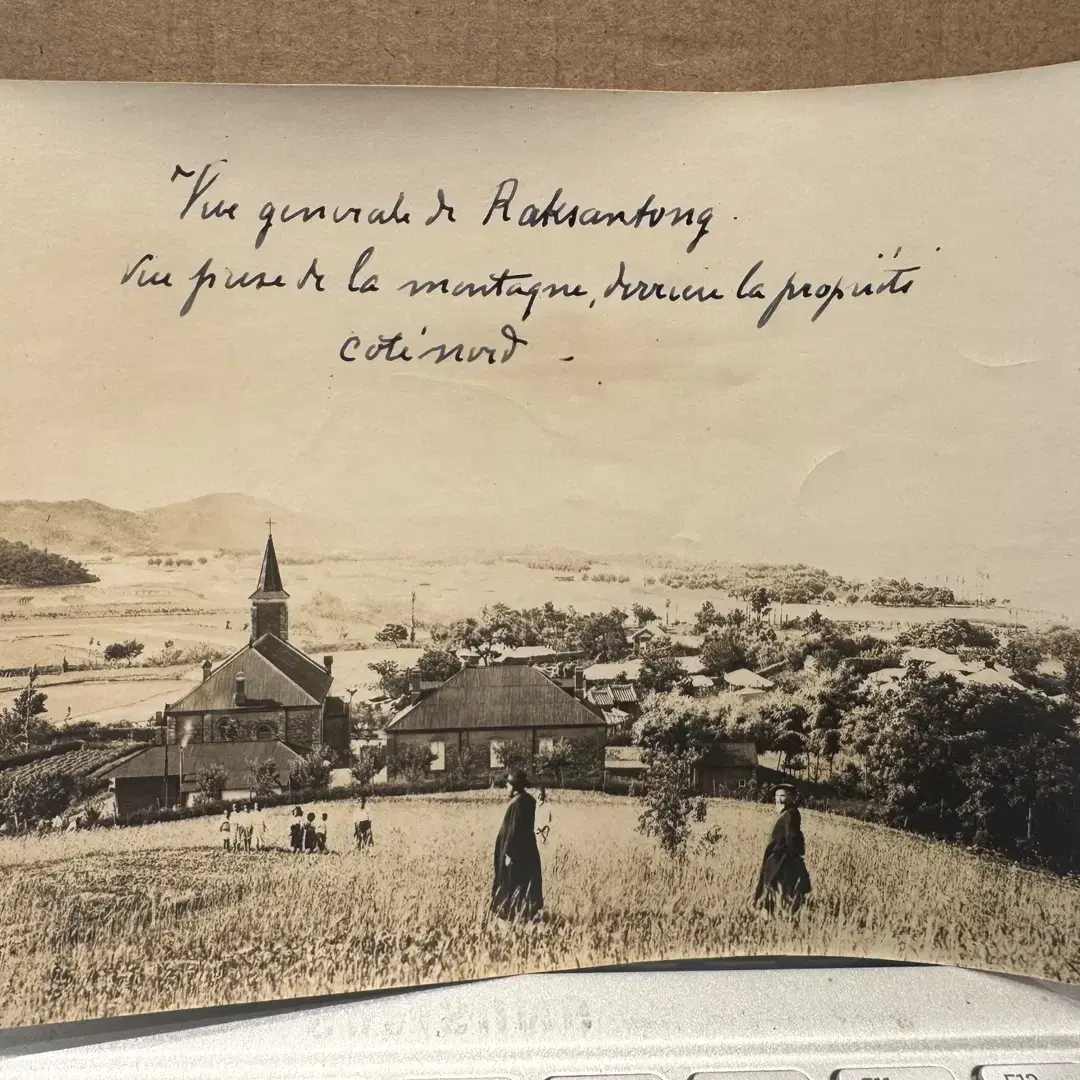 Vue generale de Raksantong.
Vue prise de la montagne, derriere la propriété
coté nord.
F12